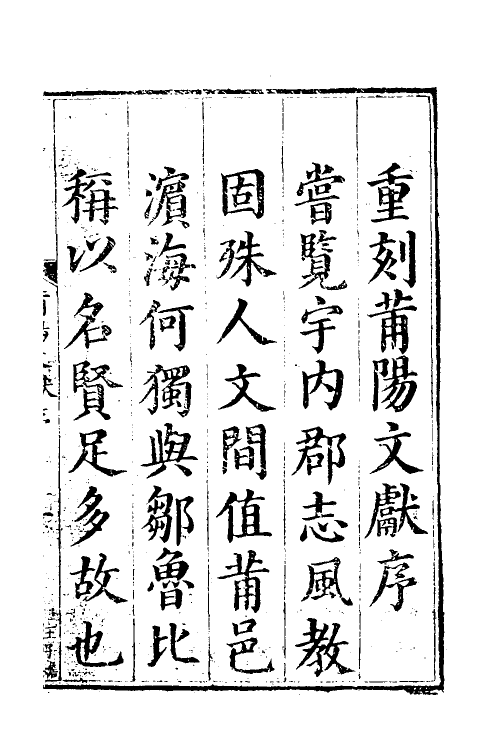 重刻莆陽文獻序
嘗覽宇內郡志風教
固殊人文間值莆邑
濵海何獨與鄒魯比
稱以名賢足多故也